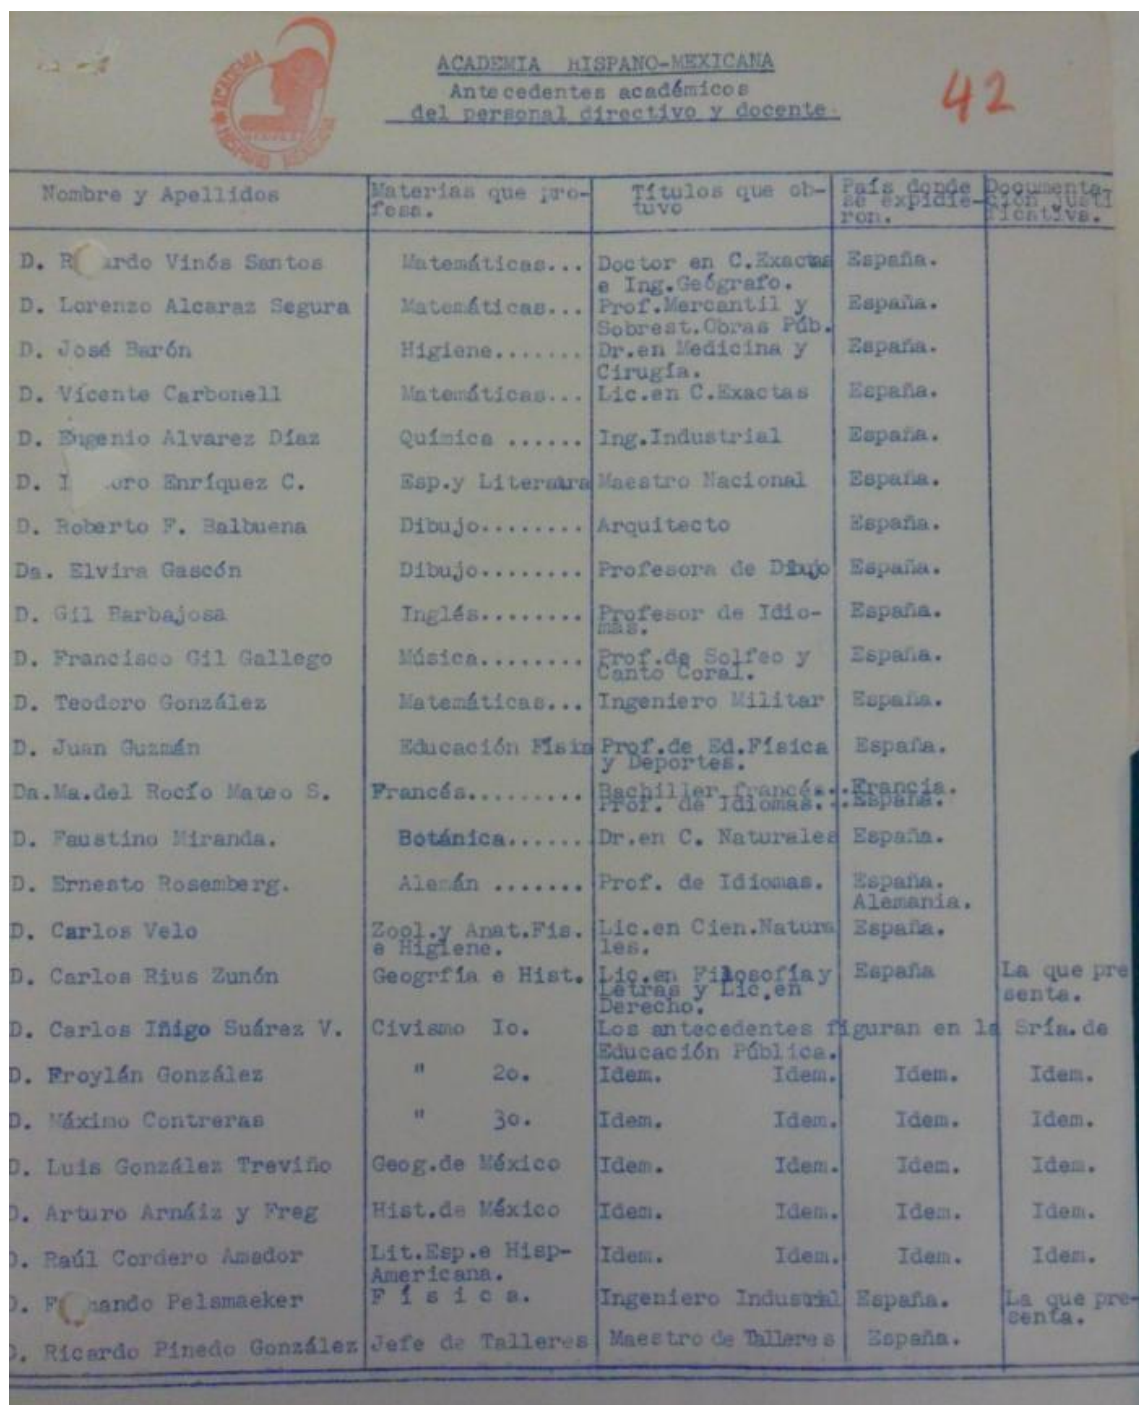 ACADEMIA HISPANO MEXICANA
ACADEMIA HISPANO-MEXICANA
Antecedentes académicos
del personal directivo y docente.
42
Nombre y Apellidos Materias que pro- Títulos que ob- País donde Documenta-
fesa. tuvo se expidie- ción justi
ron. ficativa.
D. R ardo Vinós Santos Matemáticas... Doctor en C.Exactas España.
e Ing.Geógrafo.
D. Lorenzo Alcaraz Segura Matemáticas... Prof.Mercantil y España.
Sobrest.Obras Púb.
D. José Barón Higiene....... Dr.en Medicina y España.
Cirugía.
D. Vicente Carbonell Matemáticas... Lic.en C.Exactas España.
D. Eugenio Alvarez Díaz Química ...... Ing.Industrial España.
D. I oro Enríquez C. Esp.y Literatura Maestro Nacional España.
D. Roberto F. Balbuena Dibujo........ Arquitecto España.
Da. Elvira Gascón Dibujo........ Profesora de Dibujo España.
D. Gil Barbajosa Inglés........ Profesor de Idio- España.
mas.
D. Francisco Gil Gallego Música........ Prof.de Solfeo y España.
Canto Coral.
D. Teodoro González Matemáticas... Ingeniero Militar España.
D. Juan Guzmán Educación Físic Prof.de Ed.Física España.
y Deportes.
Da.Ma.del Rocío Mateo S. Francés......... Bachiller francés.. Francia.
Prof. de Idiomas. .. España.
D. Faustino Miranda. Botánica...... Dr.en C. Naturales España.
D. Ernesto Rosemberg. Alemán ....... Prof. de Idiomas. España.
Alemania.
D. Carlos Velo Zool.y Anat.Fis. Lic.en Cien.Natura España.
e Higiene. les.
D. Carlos Rius Zunón Geogrfía e Hist. Lic.en Filosofía y España La que pre
Letras y Lic.en senta.
Derecho.
D. Carlos Iñigo Suárez V. Civismo Io. Los antecedentes figuran en la Sría.de
Educación Pública.
D. Froylán González " 2o. Idem. Idem. Idem. Idem.
D. Máximo Contreras " 3o. Idem. Idem. Idem. Idem.
D. Luis González Treviño Geog.de México Idem. Idem. Idem. Idem.
D. Arturo Arnáiz y Freg Hist.de México Idem. Idem. Idem. Idem.
D. Raúl Cordero Amador Lit.Esp.e Hisp- Idem. Idem. Idem. Idem.
Americana.
D. F nando Pelsmaeker F í s i c a. Ingeniero Industrial España. La que pre-
senta.
D. Ricardo Pinedo González Jefe de Talleres Maestro de Talleres España.